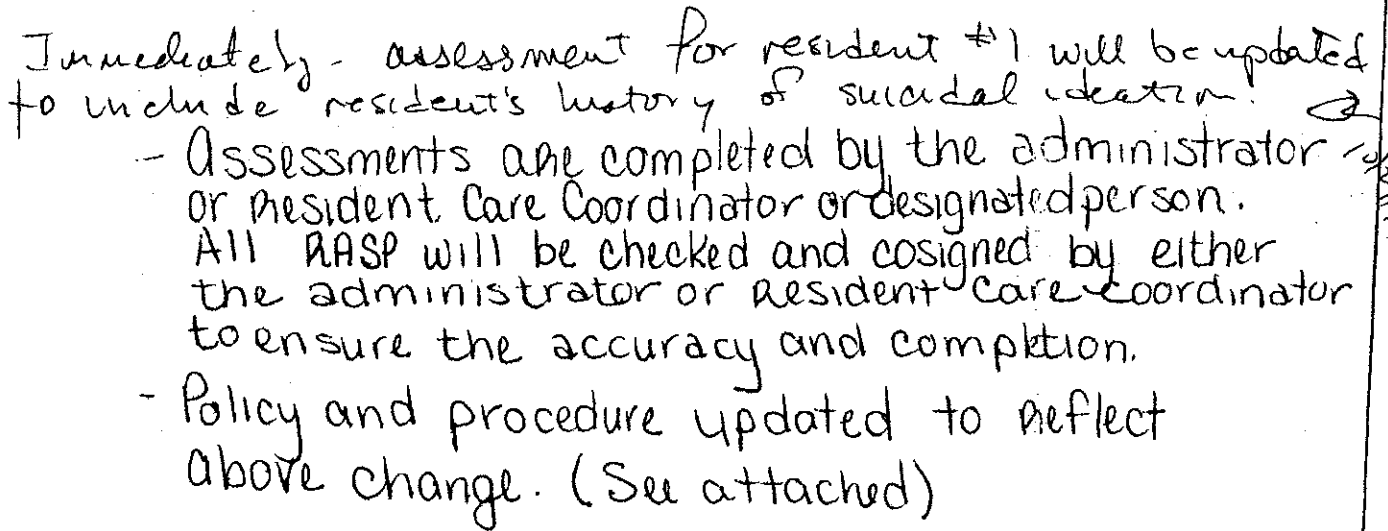 Immediately - assessment for resident #1 will be updated
to include resident's history of suicidal ideation.
- Assessments are completed by the administrator
or Resident Care Coordinator or designated person.
All RASP will be checked and cosigned by either
the administrator or Resident Care Coordinator
to ensure the accuracy and compktion.
- Policy and procedure updated to reflect
above change. (See attached)